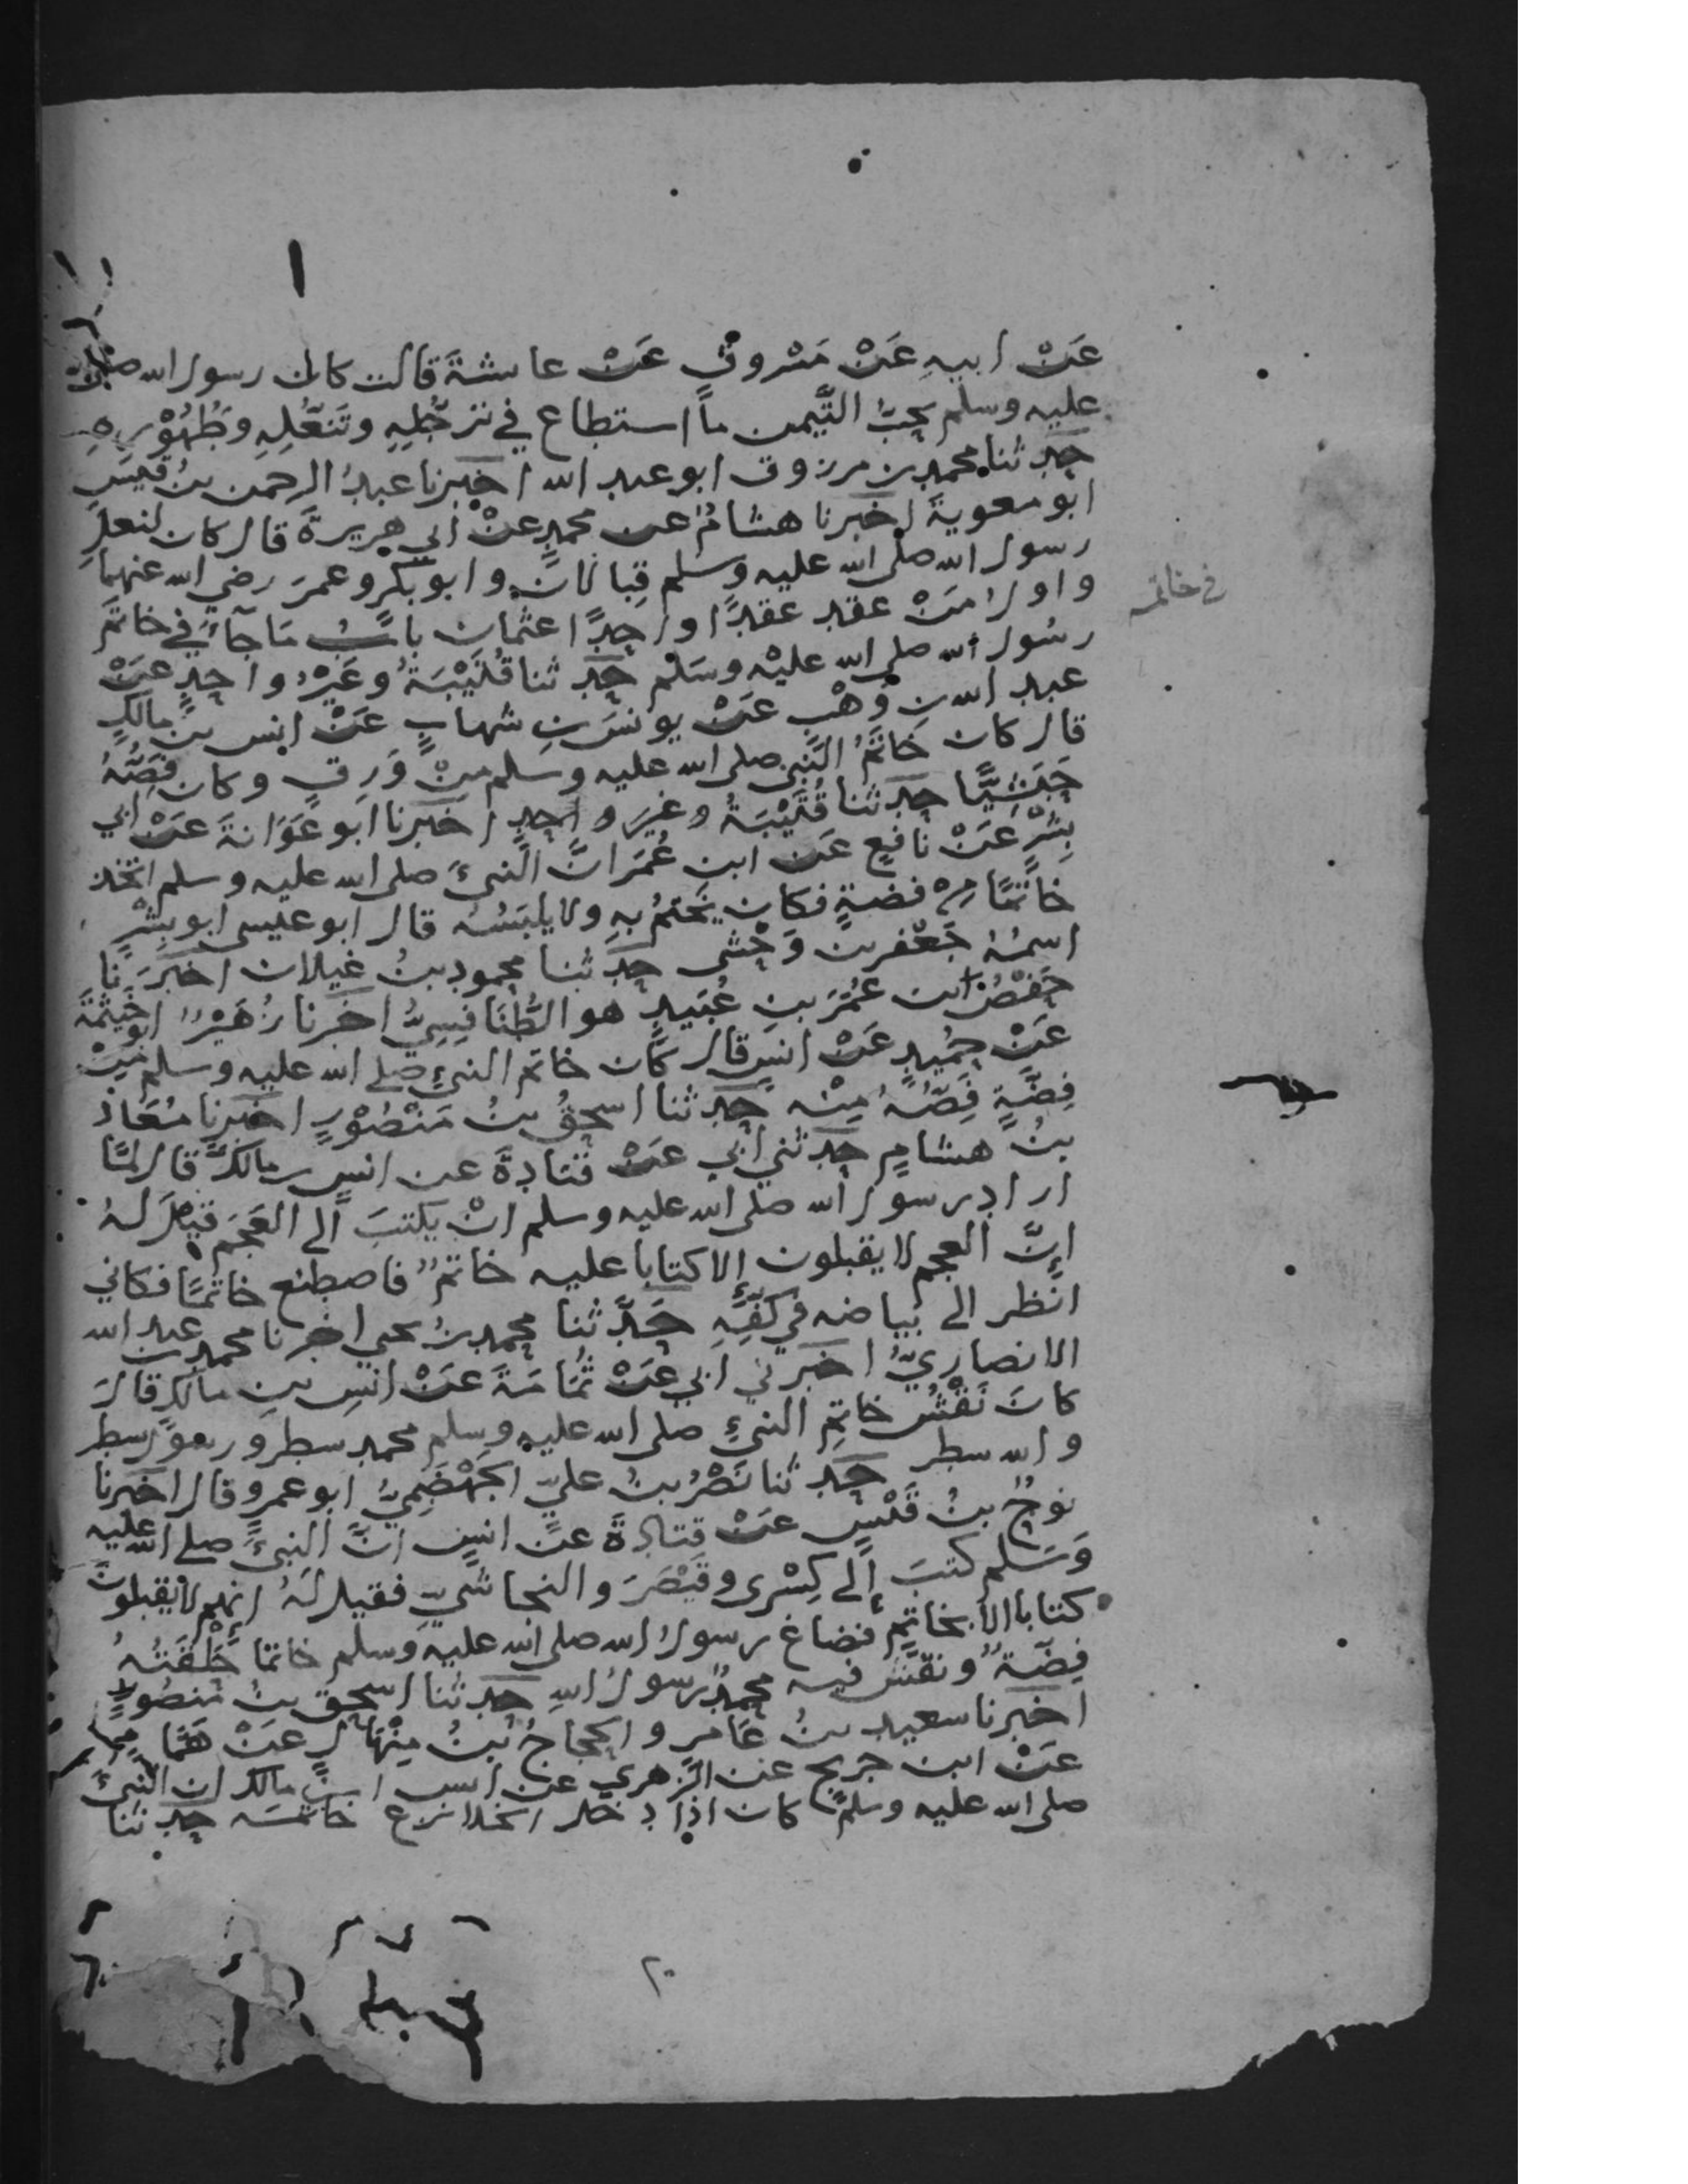 عَنْ ابيهِ عَنْ مَسْروقٍ عَنْ عايشةَ قالت كان رسول الله صلى الله
عليه وسلم يحِبُّ التَّيمن ماَ استطاع في ترجُّلِهِ وتَنَعُّلِهِ وطُهُوْرِهِ
حدثنا محمد بن مرزوق ابو عبد الله اخبرنا عبدُ الرحمن بنُ قيسٍ
ابو معويةَ اخبرنا هشامٌ عن محمدٍ عنْ ابي هريرةَ قال كان لنعلِ
رسول الله صلى الله عليه وسلم قِبالانِ وابو بكر وعمرَ رضي الله عنهما
واولُ مَنْ عقد عقدًا واحِدًا عثمان بابُ مَا جآءَ في خاتَمِ
في خاتمه
رسُول الله صلى الله عليْه وسَلم حدثنا قُتَيْبَةُ وغَيْرُ واحِدٍ عَنْ
عبد الله بنِ وَهْبٍ عَنْ يونسَ بنِ شهابٍ عَنْ انس بنِ مالكٍ
قال كان خَاتَمُ النَّبي صلى الله عليه وسَلم مِنْ وَرِقٍ وكان فَصُّهُ
حَبَشِيًّا حدثنا قُتَيْبَةُ وغيرُ واحِدٍ اخبرنا ابو عَوَانةَ عَنْ ابي
بِشْرٍ عَنْ نافعٍ عَن ابن عُمَرَ انَّ النبيَّ صلى الله عليه وسلم اتخذ
خاتَمًا مِنْ فضةٍ فكان يختمُ بهِ ولا يلبَسُهُ قال ابو عيسى ابو بِشْرٍ
اسمُهُ جَعْفر بن وَحْشي حدثنا محمود بنُ غيلان اخبَرَنا
حَفْصُ ابن عُمَرَ بنِ عُبَيدٍ هو الطَّنَافِسِيُّ اخبرنا زُهَيْرٌ ابو خيثمَةَ
عَنْ حُمَيدٍ عَنْ انسٍ قال كان خاتم النبيِّ صلى الله عليه وسلم مِنْ
فِضَّةٍ فَصُّهُ مِنْه حدثنا اسحقُ بنُ مَنْصُوْرٍ اخبرنا مُعَاذُ
بنُ هشامٍ حدثني ابي عَنْ قتادةَ عن انسِ بن مالكٍ قال لمَّا
اراد رسول الله صلى الله عليه وسلم انْ يكتبَ الى العَجَمِ قيل لهُ
إنَّ العجم لا يقبلون إلا كتابا عليه خاتمٌ فاصطنع خاتمًا فكاني
انظر الى بياضه في كَفِّهِ حَدَّثنا محمد بنُ يحيى اخبرنا محمد بن عبد الله
الانصاريُّ اخبرني ابي عَنْ ثُمَامَةَ عَنْ انسِ بنِ مالكٍ قالَ
كانَ نَقْشُ خاتِمِ النبيِّ صلى الله عليهِ وسلم محمد سطر ورسول سطر
والله سطر حدثنا نَصْرُ بنُ عليّ الجَهْضَمِيُّ ابو عمرو قال اخبرنا
نوحُ بنُ قَيْسٍ عَنْ قتادةَ عنْ انسٍ انَّ النبيَّ صلى الله عليه
وَسَلم كتبَ إلى كِسْرى وقيْصَرَ والنجاشيّ فقيل لَهُ إنهم لا يقبلونَ
كتابا الا بخاتِمٍ فصاغ رسولُ الله صلى الله عليه وَسلم خاتمًا حَلْقَتُهُ
فِضّةٌ ونقَّشَ فيه محمدٌ رسولُ اللهِ حدثنا اسحق بنُ مَنصُورٍ
اخبرنا سعيد بنُ عَامرٍ والحجاجُ بنُ مِنْهالٍ عَنْ همَّامٍ
عَنْ ابن جريج عن الزهريّ عن انس ابن مالك ان النبيَّ
صلى الله عليه وسلم كان اذا دخل الخلا نزع خاتمَه حدثنا